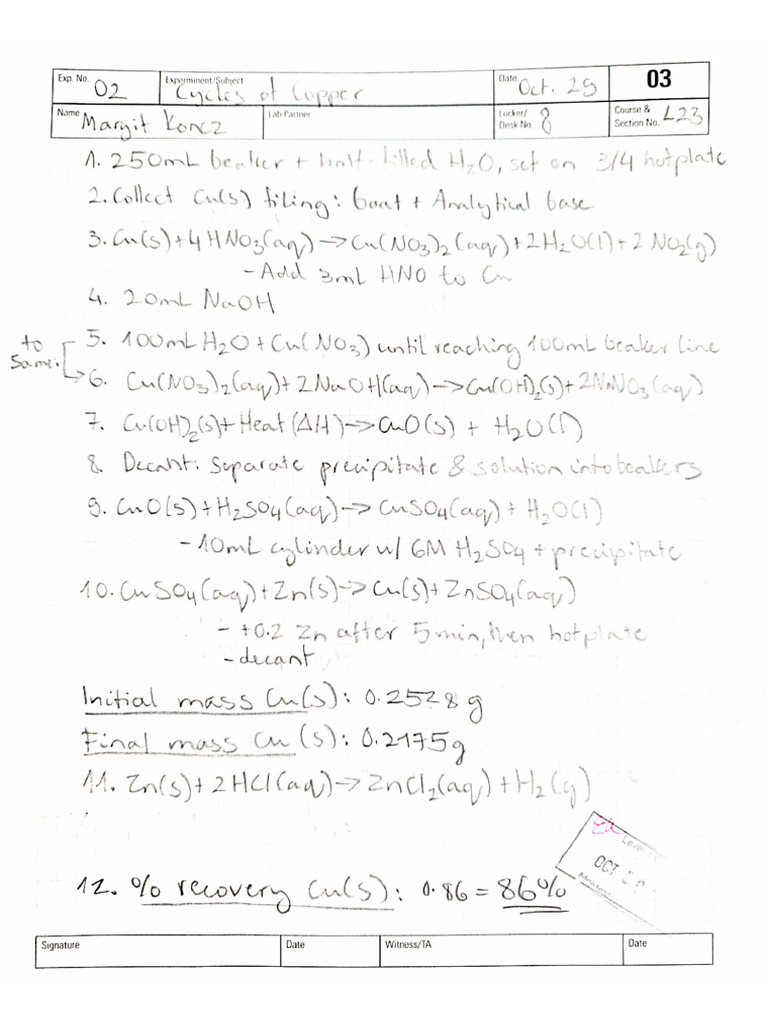 Exp. No. 02 Experiment/Subject Cycles of Copper Date Oct. 29 03
Name Margit Koncz Lab Partner Locker/Desk No. 8 Course & Section No. L23
1. 250mL beaker + half-filled H₂O, set on 3/4 hotplate
2. Collect Cu(s) filing: boat + Analytical base
3. Cu(s)+4HNO₃(aq)→Cu(NO₃)₂(aq)+2H₂O(l)+2NO₂(g)
-Add 3mL HNO to Cu
4. 20mL NaOH
to same.
5. 100mL H₂O + Cu(NO₃) until reaching 100mL beaker line
6. Cu(NO₃)₂(aq)+2NaOH(aq)→Cu(OH)₂(s)+2NaNO₃(aq)
7. Cu(OH)₂(s)+Heat(ΔH)→CuO(s) + H₂O(l)
8. Decant: separate precipitate & solution into beakers
9. CuO(s)+H₂SO₄(aq)→CuSO₄(aq)+H₂O(l)
-10mL cylinder w/ 6M H₂SO₄ + precipitate
10. CuSO₄(aq)+Zn(s)→Cu(s)+ZnSO₄(aq)
- +0.2 Zn after 5min, then hotplate
-decant
Initial mass Cu(s): 0.2528g
Final mass Cu(s): 0.2175g
11. Zn(s)+2HCl(aq)→ZnCl₂(aq)+H₂(g)
OCT
12. % recovery Cu(s): 0.86 = 86%
Signature Date Witness/TA Date